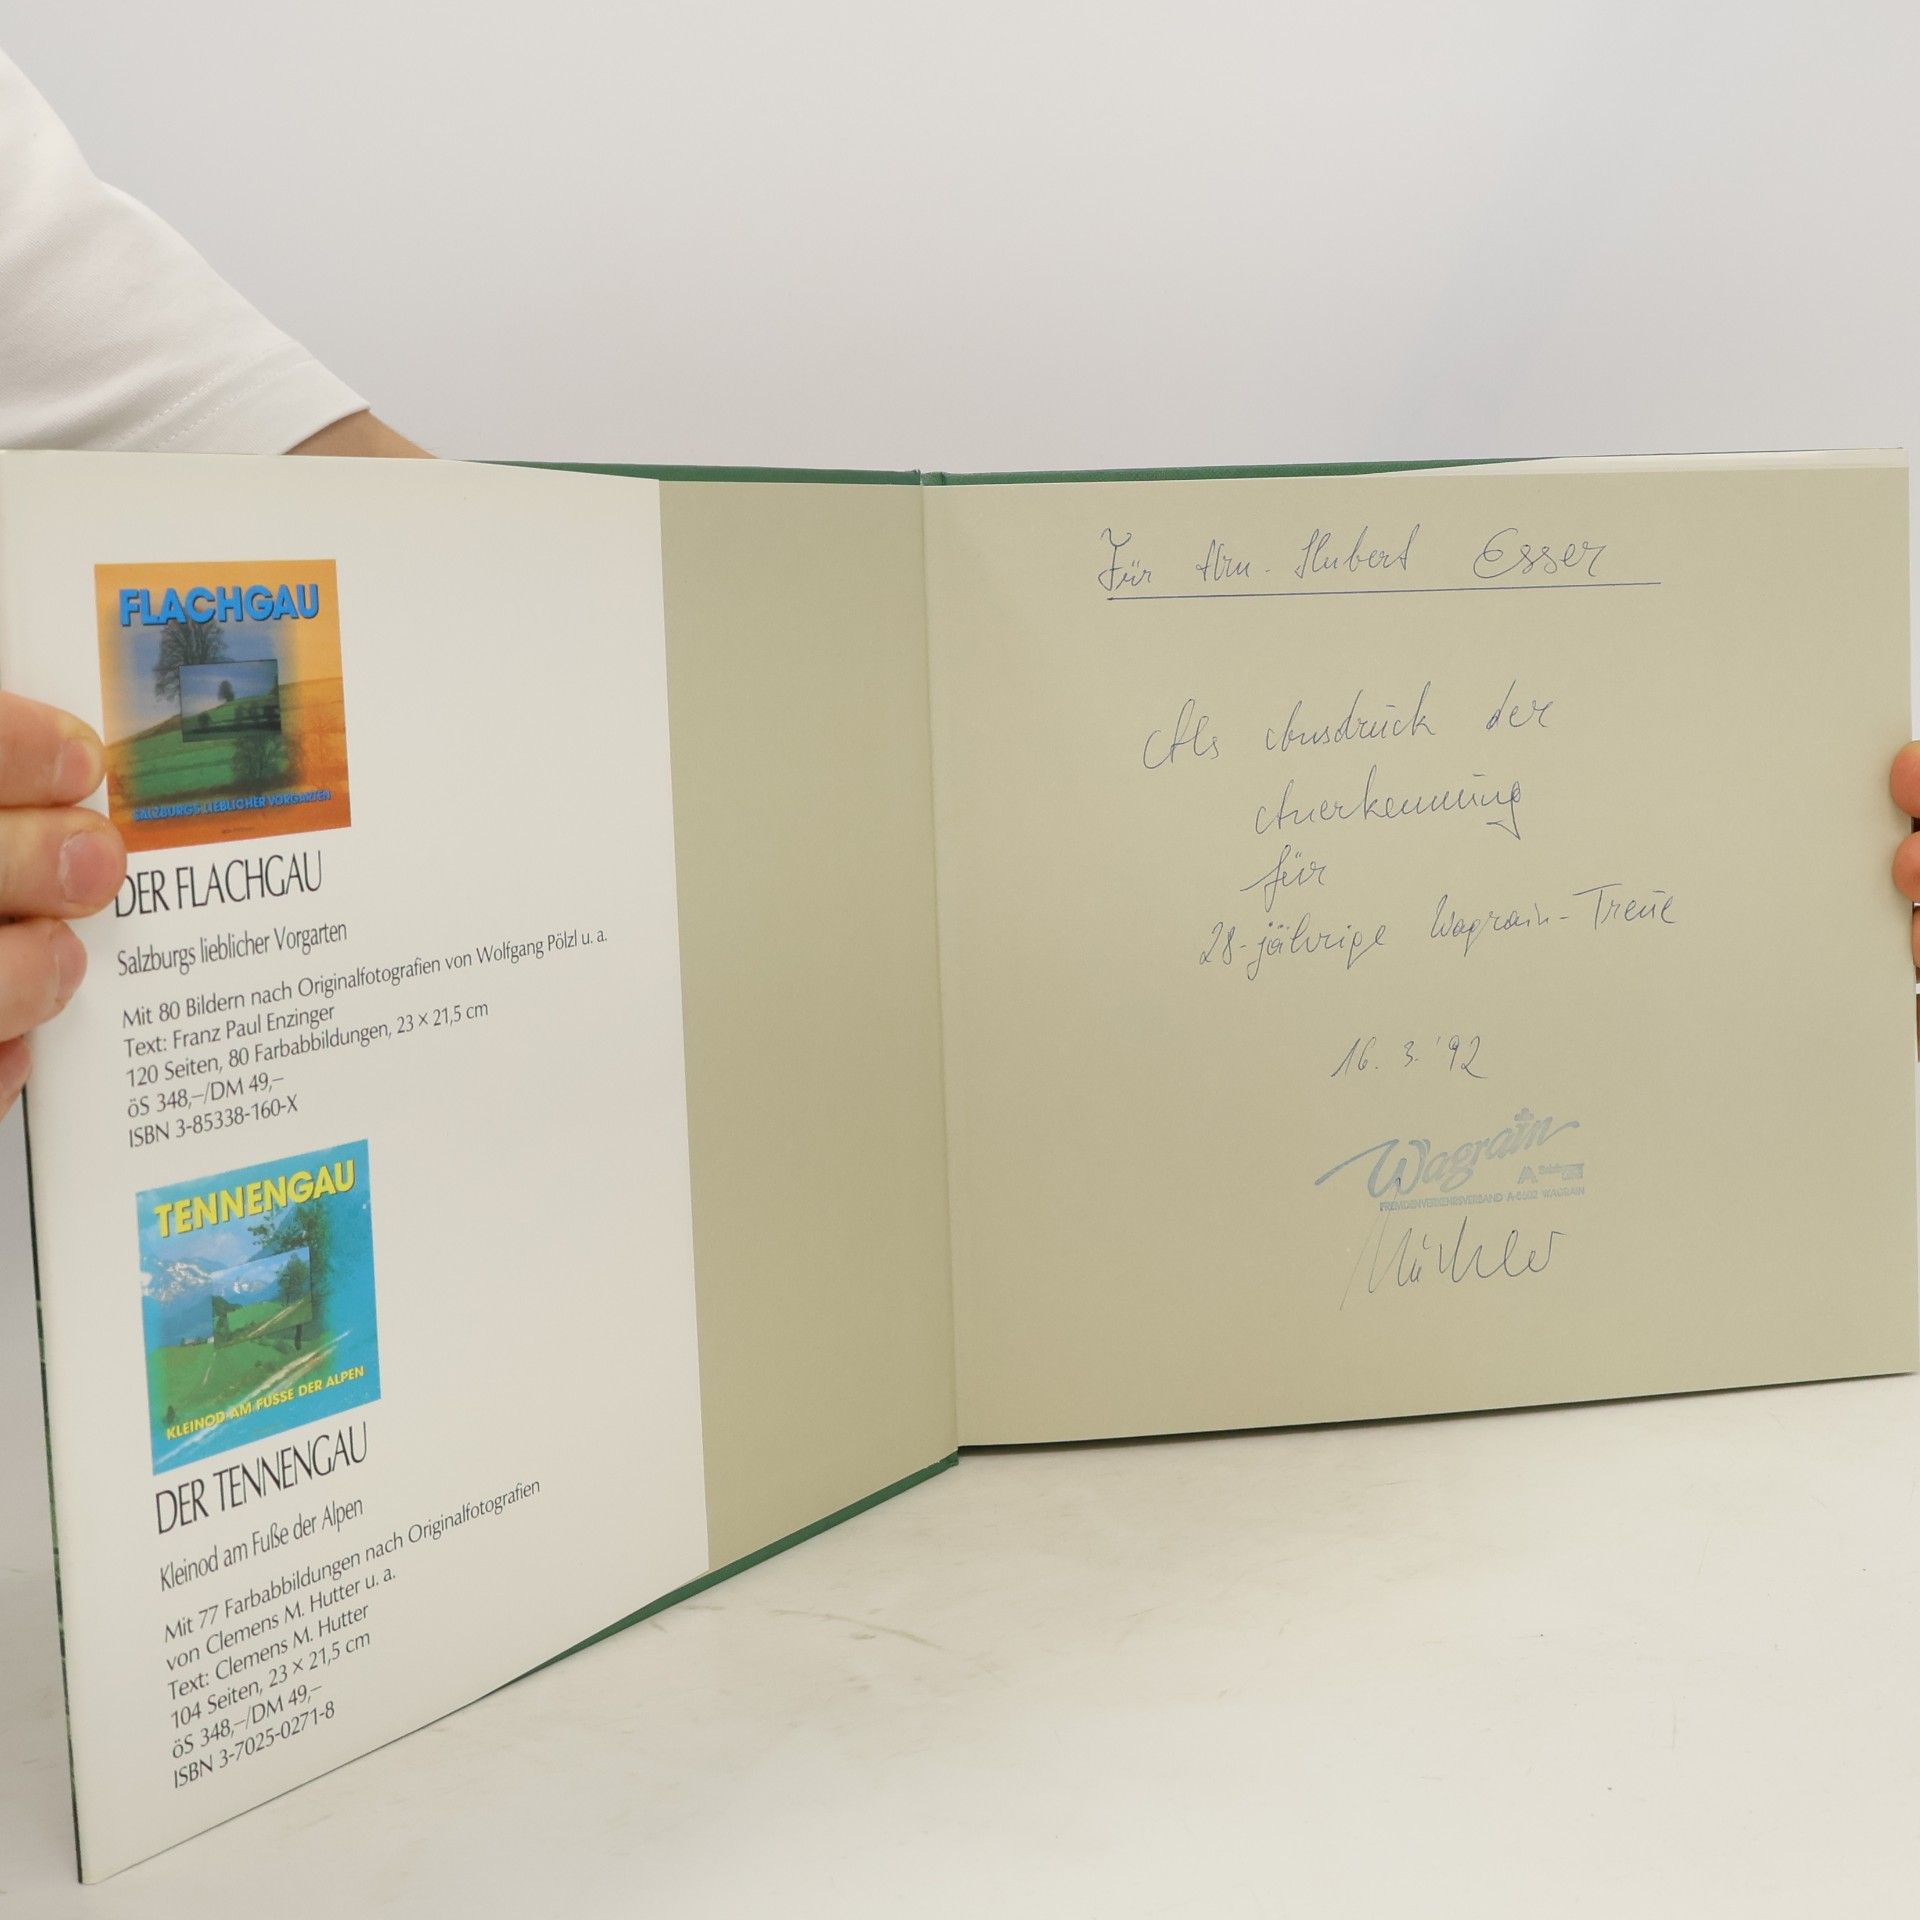 FLACHGAU
SALZBURGS LIEBLICHER VORGARTEN
DER FLACHGAU
Salzburgs lieblicher Vorgarten
Mit 80 Bildern nach Originalfotografien von Wolfgang Pölzl u. a.
Text: Franz Paul Enzinger
120 Seiten, 80 Farbabbildungen, 23 × 21,5 cm
öS 348,–/DM 49,–
ISBN 3-85338-160-X
TENNENGAU
KLEINOD AM FUSSE DER ALPEN
DER TENNENGAU
Kleinod am Fuße der Alpen
Mit 77 Farbabbildungen nach Originalfotografien
von Clemens M. Hutter u. a.
Text: Clemens M. Hutter
104 Seiten, 23 × 21,5 cm
öS 348,–/DM 49,–
ISBN 3-7025-0271-8
Für Hrn. Hubert Esser
Als Ausdruck der
Anerkennung
für
28-jährige Wagrain-Treue
16. 3. '92
Wagrain
FREMDENVERKEHRSVERBAND A-5602 WAGRAIN